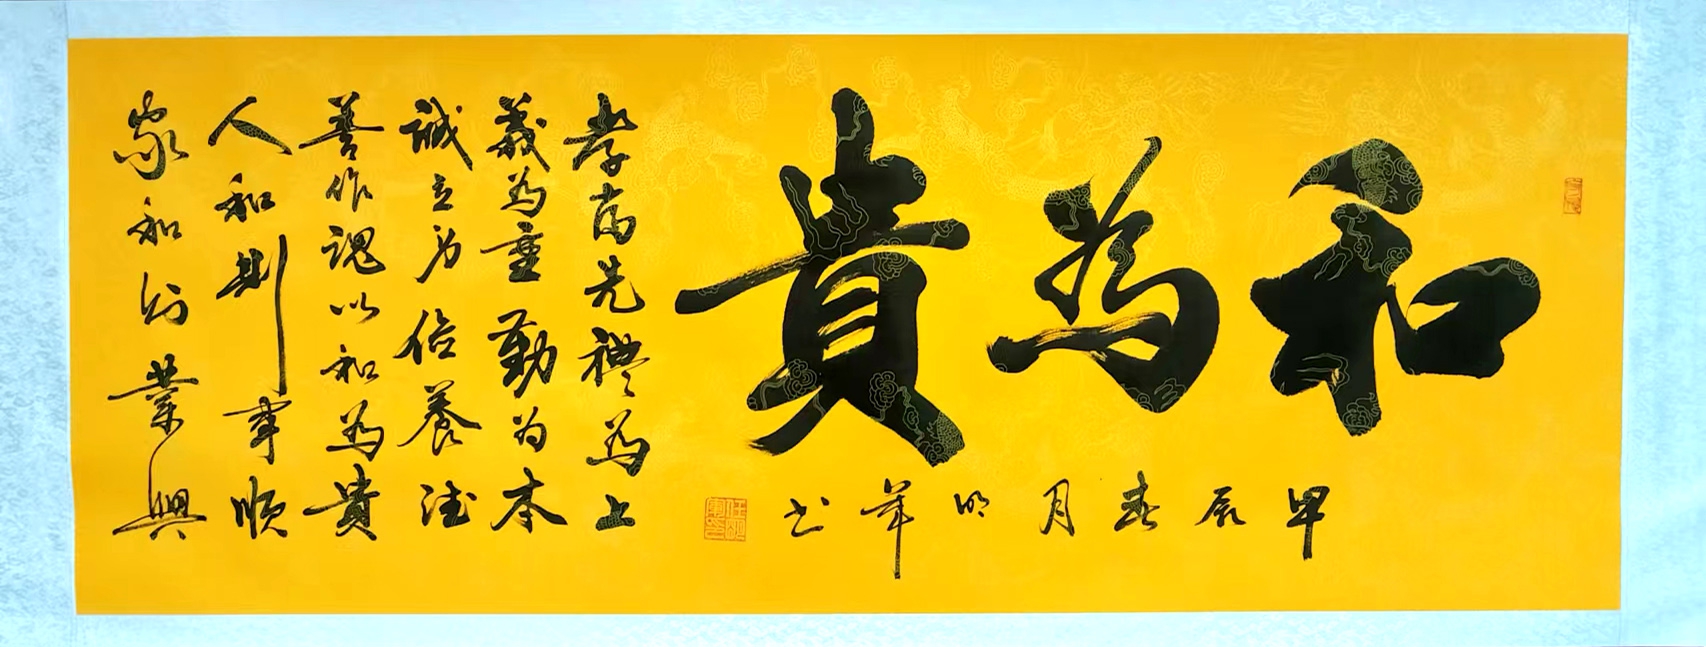 和為貴
甲辰春月明军书
孝當先禮為上
義為重勤为本
誠立身俭養德
善作魂以和為貴
人和則事順
家和则業興